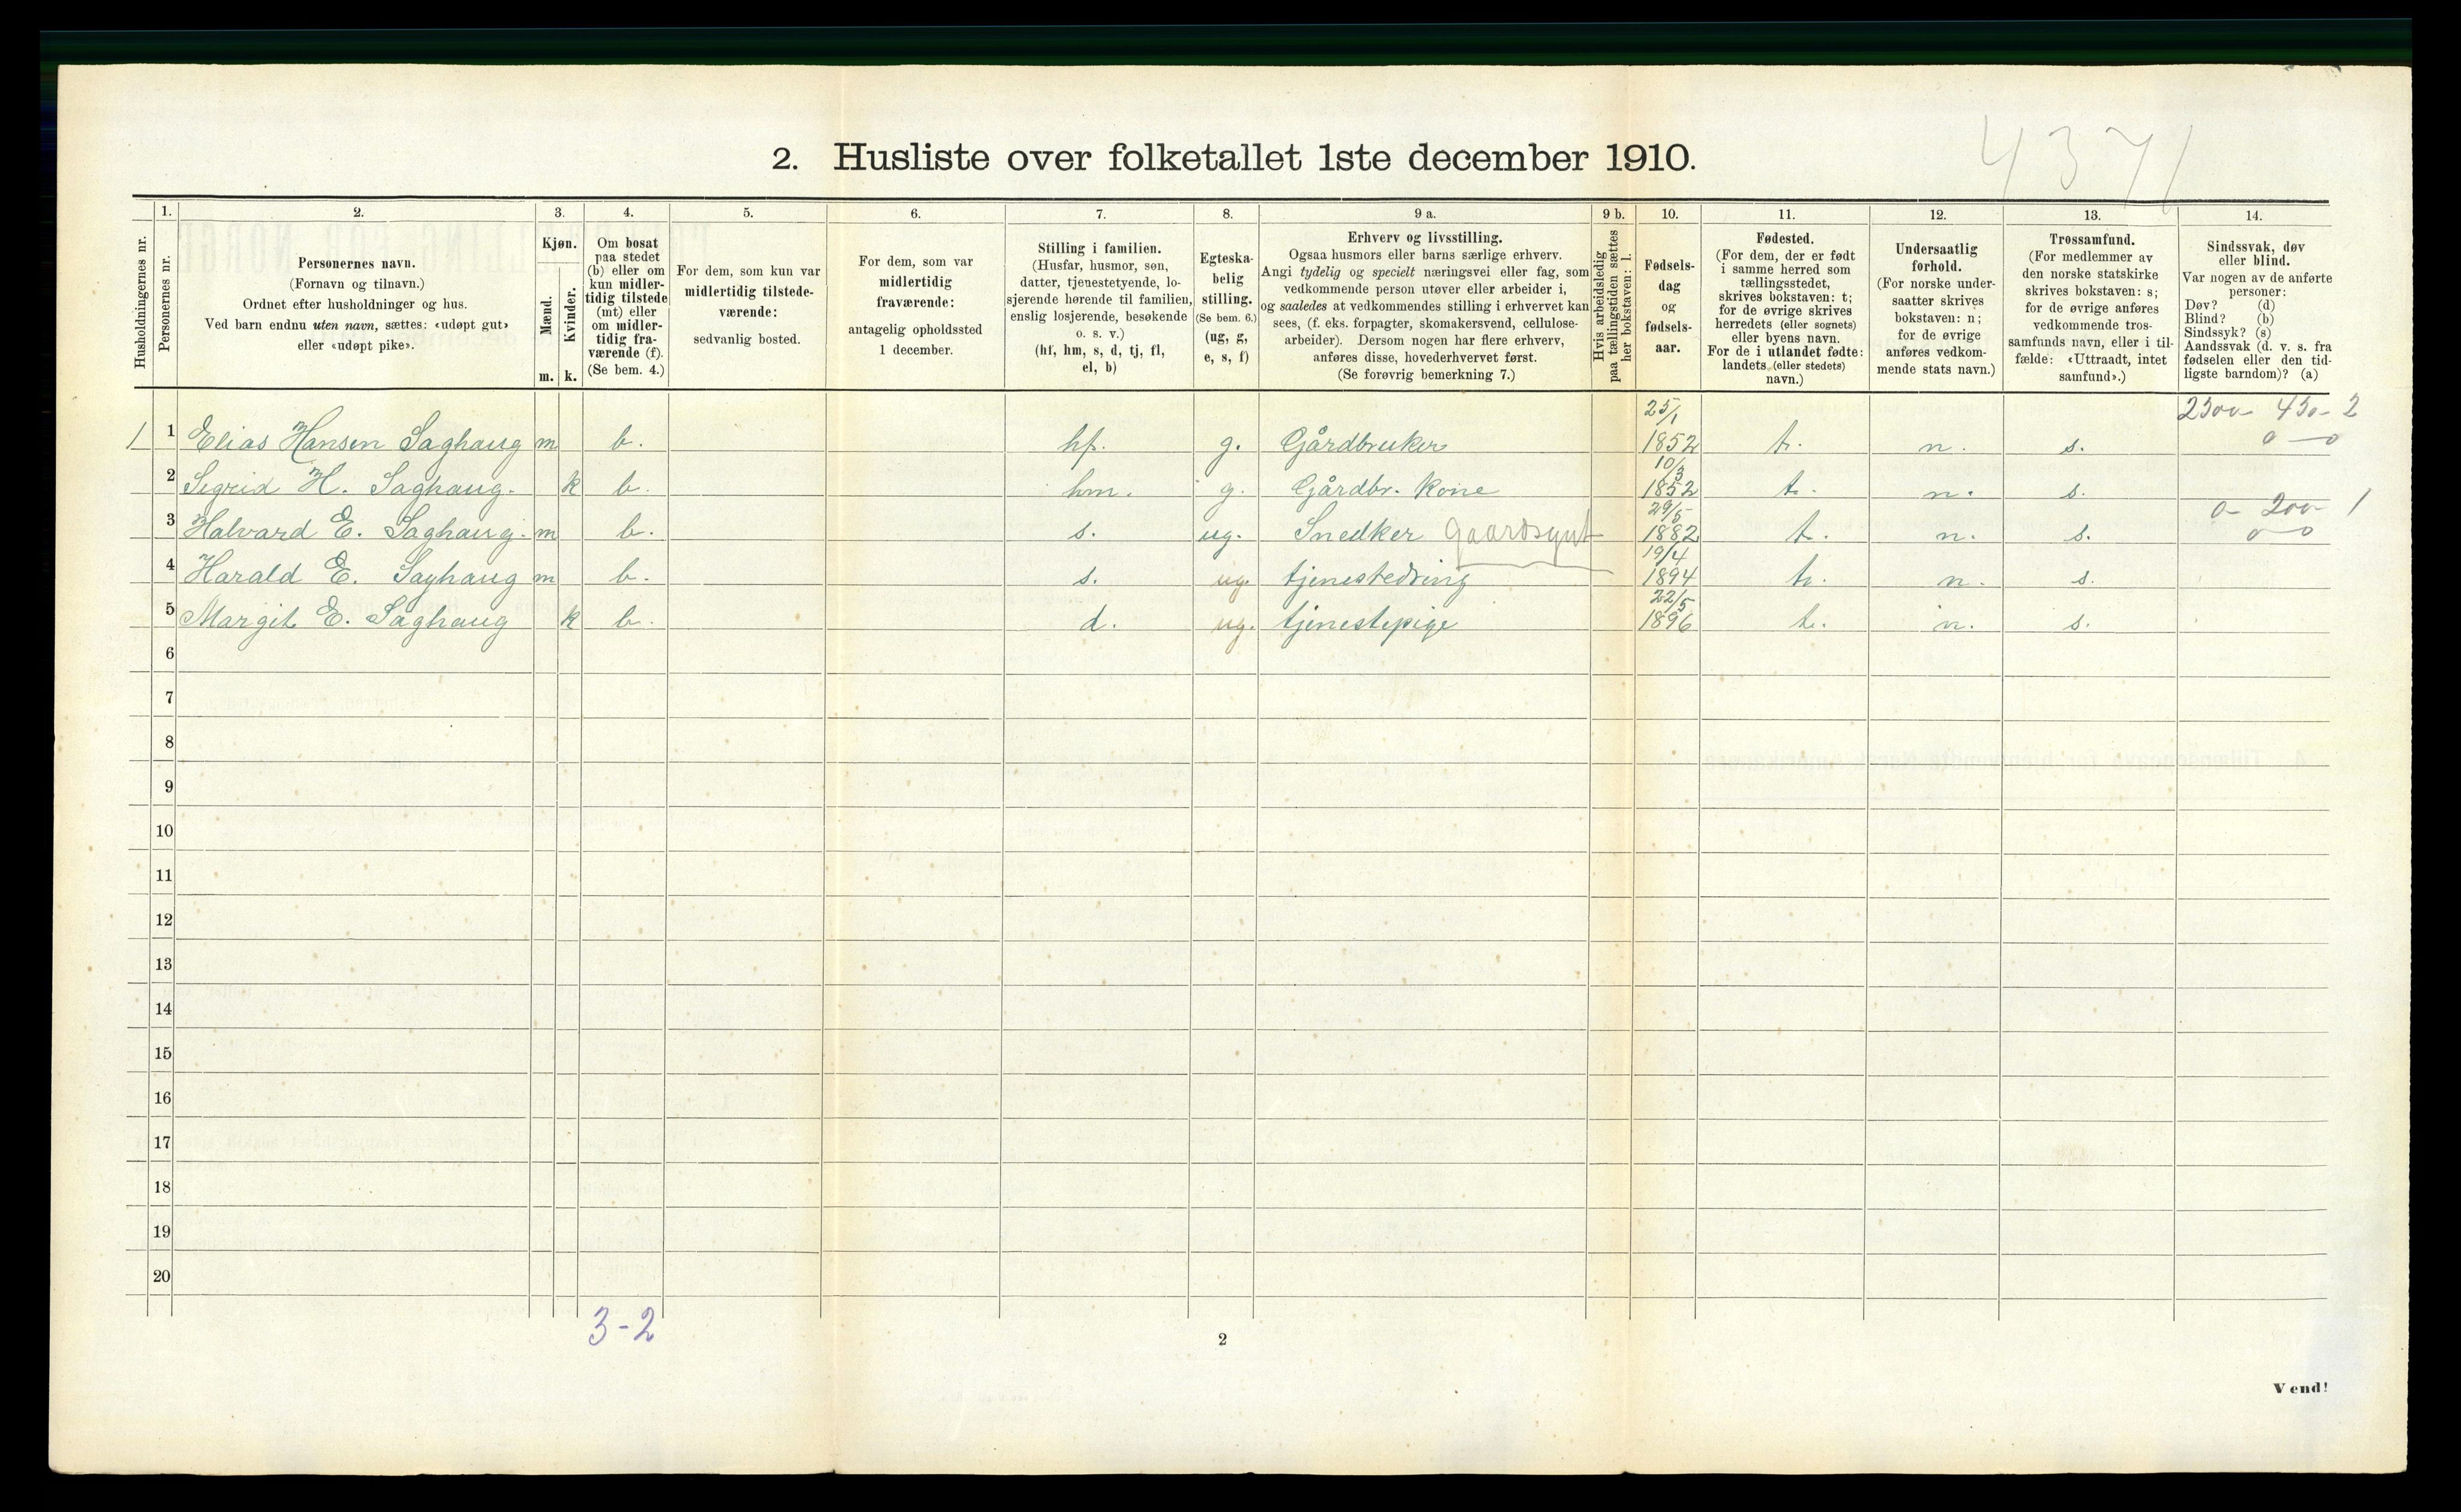 4371
2. Husliste over folketallet 1ste december 1910.
1. 2. 3. 4. 5. 6. 7. 8. 9 a. 9 b. 10. 11. 12. 13. 14.
Husholdningernes nr.
Personernes nr.
Personernes navn.
(Fornavn og tilnavn.)
Ordnet efter husholdninger og hus.
Ved barn endnu uten navn, sættes: «udøpt gut»
eller «udøpt pike».
Kjøn.
Mænd.
Kvinder.
m. k.
Om bosat
paa stedet
(b) eller om
kun midler-
tidig tilstede
(mt) eller
om midler-
tidig fra-
værende (f).
(Se bem. 4.)
For dem, som kun var
midlertidig tilstede-
værende:
sedvanlig bosted.
For dem, som var
midlertidig
fraværende:
antagelig opholdssted
1 december.
Stilling i familien.
(Husfar, husmor, søn,
datter, tjenestetyende, lo-
sjerende hørende til familien,
enslig losjerende, besøkende
o. s. v.)
(hf, hm, s, d, tj, fl,
el, b)
Egteska-
belig
stilling.
(Se bem. 6.)
(ug, g,
e, s, f)
Erhverv og livsstilling.
Ogsaa husmors eller barns særlige erhverv.
Angi tydelig og specielt næringsvei eller fag, som
vedkommende person utøver eller arbeider i,
og saaledes at vedkommendes stilling i erhvervet kan
sees, (f. eks. forpagter, skomakersvend, cellulose-
arbeider). Dersom nogen har flere erhverv,
anføres disse, hovederhvervet først.
(Se forøvrig bemerkning 7.)
Hvis arbeidsledig
paa tællingstiden sættes
her bokstaven: l.
Fødsels-
dag
og
fødsels-
aar.
Fødested.
(For dem, der er født
i samme herred som
tællingsstedet,
skrives bokstaven: t;
for de øvrige skrives
herredets (eller sognets)
eller byens navn.
For de i utlandet fødte:
landets (eller stedets)
navn.)
Undersaatlig
forhold.
(For norske under-
saatter skrives
bokstaven: n;
for de øvrige
anføres vedkom-
mende stats navn.)
Trossamfund.
(For medlemmer av
den norske statskirke
skrives bokstaven: s;
for de øvrige anføres
vedkommende tros-
samfunds navn, eller i til-
fælde: «Uttraadt, intet
samfund».)
Sindssvak, døv
eller blind.
Var nogen av de anførte
personer:
Døv? (d)
Blind? (b)
Sindssyk? (s)
Aandssvak (d. v. s. fra
fødselen eller den tid-
ligste barndom)? (a)
2500- 450- 2
1 1 Elias Hansen Saghaug m b. hf. g. Gårdbruker 25/1 1852 t. n. s. 0 — 0
2 Sigrid H. Saghaug. k b. hm. g. Gårdbr. kone 10/3 1852 t. n. s.
0- 200- 1
3 Halvard E. Saghaug. m b. s. ug. Snedker Gaardsgut 29/5 1882 t. n. s. 0 - 0
4 Harald E. Saghaug m b. s. ug. tjenestedreng 19/4 1894 t. n. s.
5 Margit E. Saghaug k b. d. ug. tjenestepige 22/5 1896 t. n. s.
6
7
8
9
10
11
12
13
14
15
16
17
18
19
20
3-2
2
Vend!